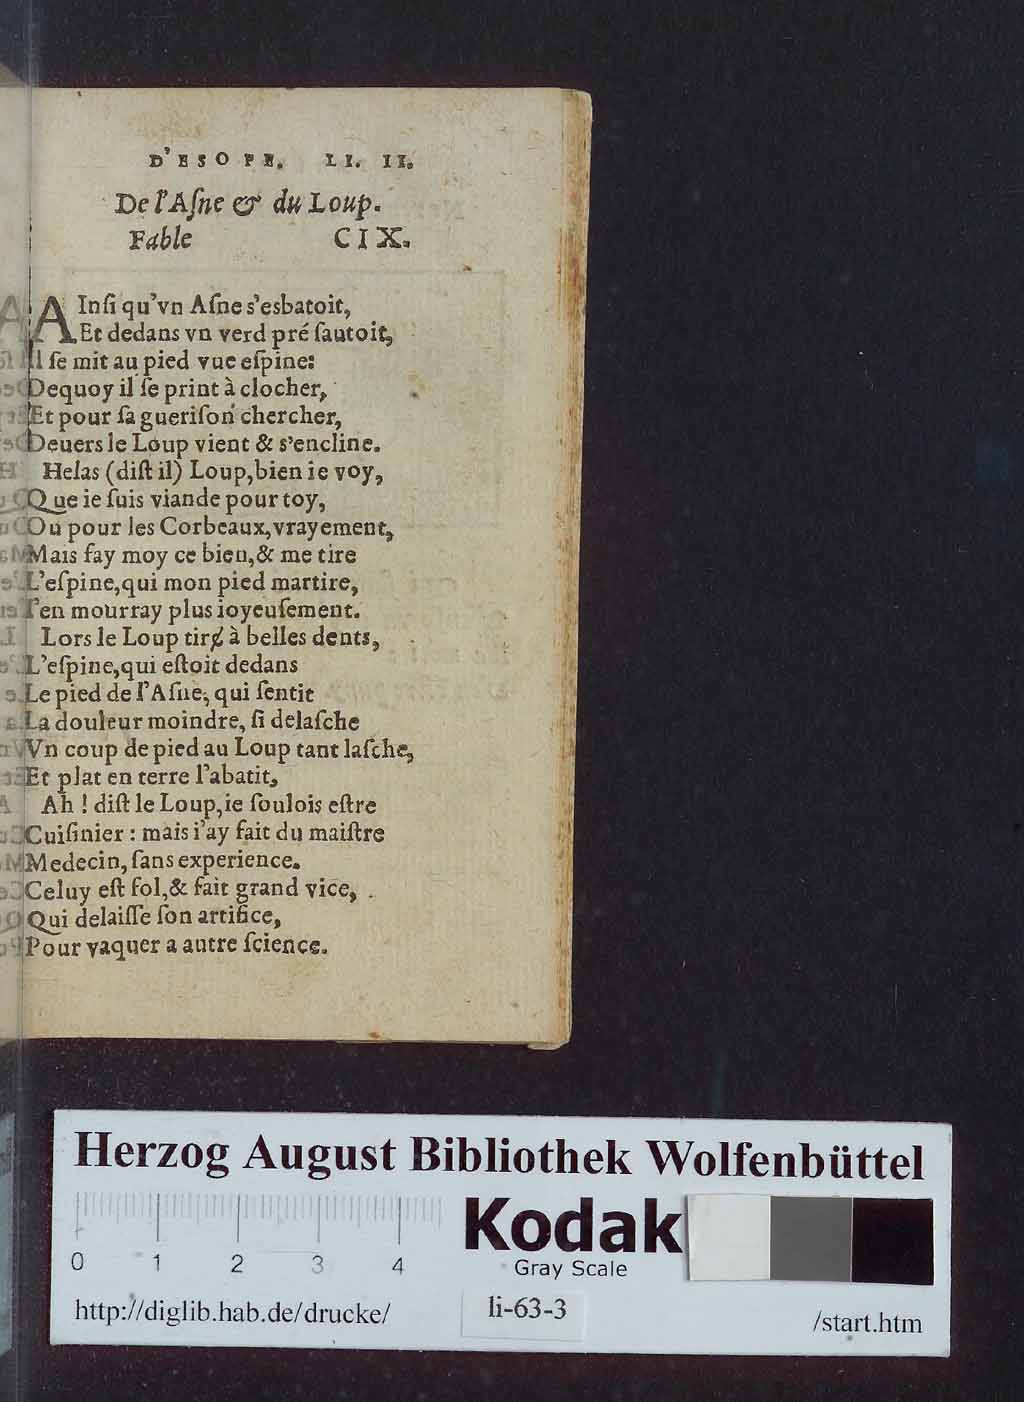 D'ESOPE. LI. II.
De l'Aſne & du Loup.
Fable CIX.
AInſi qu'vn Aſne s'esbatoit,
Et dedans vn verd pré ſautoit,
Il ſe mit au pied vue eſpine:
Dequoy il ſe print à clocher,
Et pour ſa gueriſon chercher,
Deuers le Loup vient & s'encline.
Helas (diſt il) Loup, bien ie voy,
Que ie ſuis viande pour toy,
Ou pour les Corbeaux, vrayement,
Mais fay moy ce bien, & me tire
L'eſpine, qui mon pied martire,
I'en mourray plus ioyeuſement.
Lors le Loup tire à belles dents,
L'eſpine, qui eſtoit dedans
Le pied de l'Aſne, qui ſentit
La douleur moindre, ſi delaſche
Vn coup de pied au Loup tant laſche,
Et plat en terre l'abatit,
Ah ! diſt le Loup, ie ſoulois eſtre
Cuiſinier : mais i'ay fait du maiſtre
Medecin, ſans experience.
Celuy eſt fol, & fait grand vice,
Qui delaiſſe ſon artifice,
Pour vaquer a autre ſcience.
Herzog August Bibliothek Wolfenbüttel
0 1 2 3 4
Kodak
Gray Scale
http://diglib.hab.de/drucke/ li-63-3 /start.htm